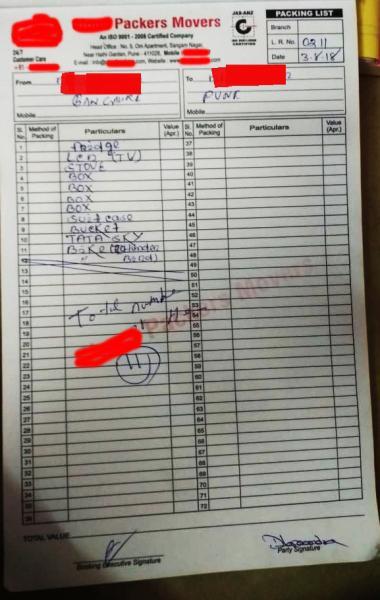 Packers Movers
An ISO 9001 - 2008 Certified Company
Head Office : No. 5, Om Apartment, Sangam Nagar,
Near Hallei Garden, Pune - 411028, Mobile
E-mail : info@ Website : www.
24/7
Customer Care
+91-
JAS-ANZ
PACKING LIST
Branch
L. R. No. 0211
Date 3.8.18
From
Mobile
To
PUNE
Mobile
Sl. No. Method of Packing Particulars Value (Apr.) Sl. No. Method of Packing Particulars Value (Apr.)
1 37
2 LCD (TV) 38
3 STOVE 39
4 BOX 40
5 BOX 41
6 BOX 42
7 BOX 43
8 Suitcase 44
9 BUCKET 45
10 TATA SKY 46
11 47
12 48
13 49
14 50
15 51
16 52
17 Total number 53
18 54
19 55
20 56
21 57
22 11 58
23 59
24 60
25 61
26 62
27 63
28 64
29 65
30 66
31 67
32 68
33 69
34 70
35 71
36 72
Packers Movers
TOTAL VALUE
Booking Executive Signature
Party Signature